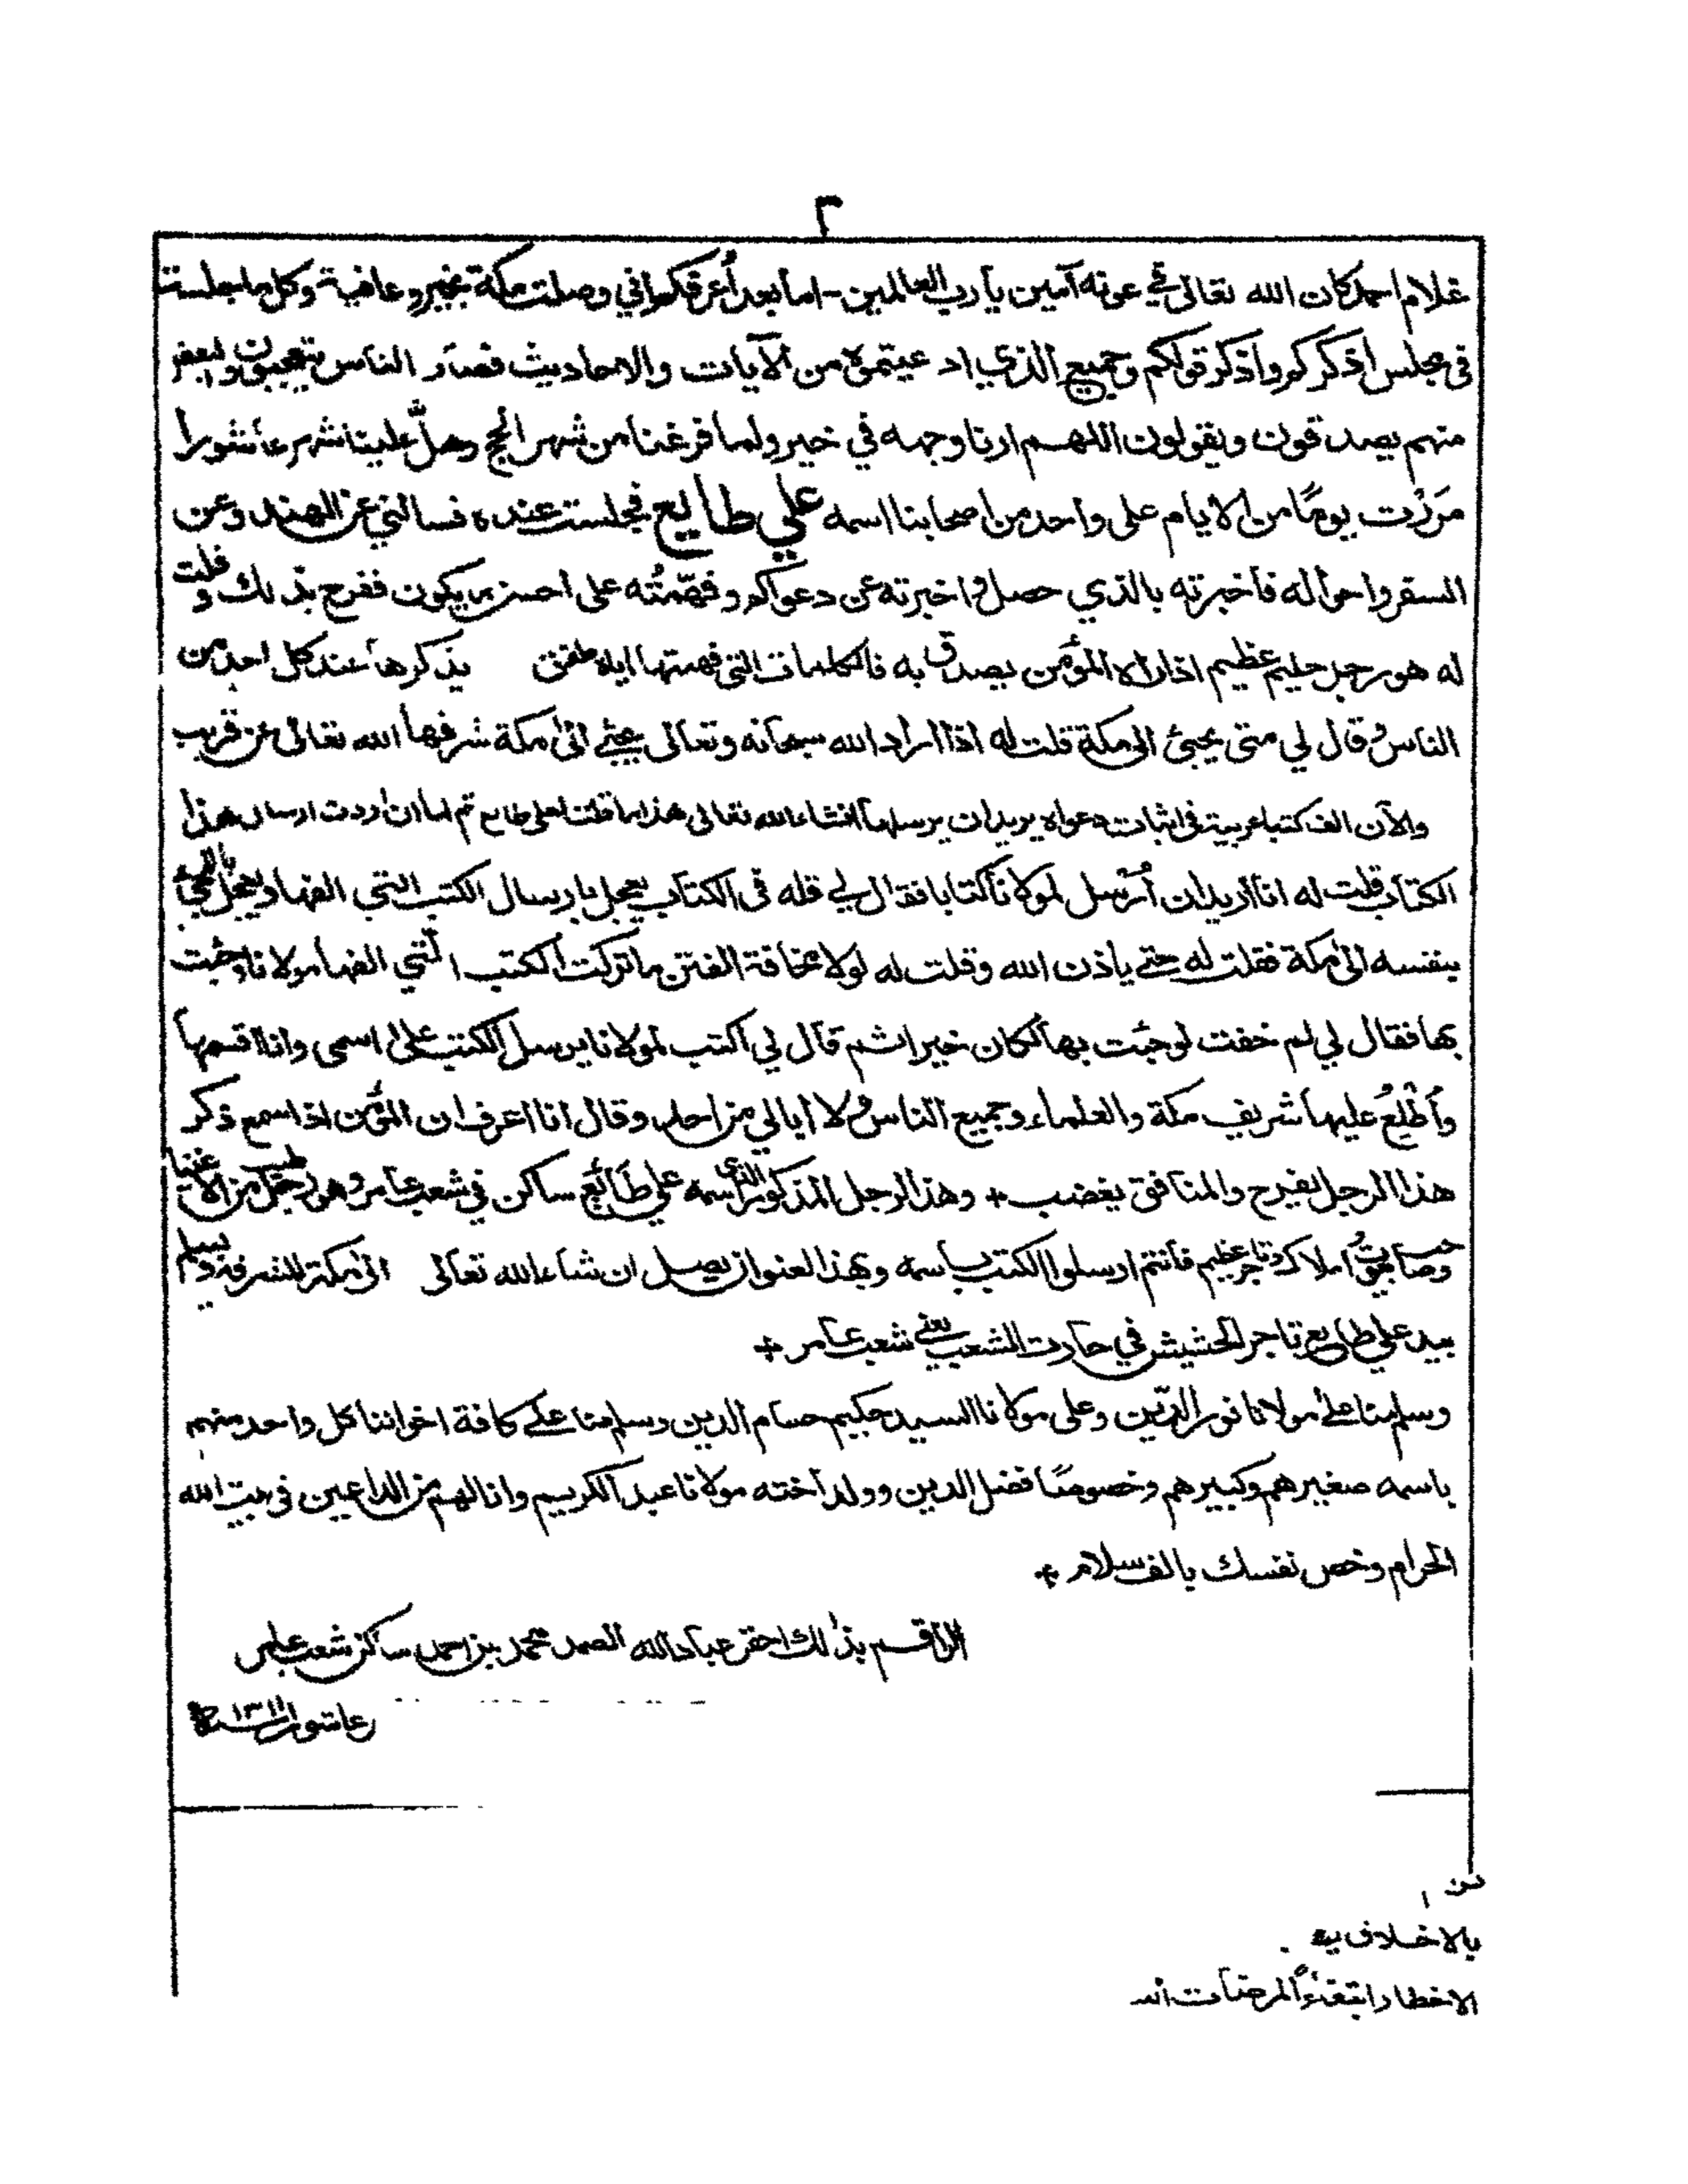 ٢
غلام احمد كان الله تعالى في عونه آمين يا رب العالمين - اما بعد أعرفكم اني وصلت مكة بخير وعافية وكل ما جلست
في مجلس أذكركم واذكر قولكم وجميع الذي ادعيتموه من الآيات والاحاديث فصار الناس يتعجبون ولبعض
منهم يصدقون ويقولون اللهم ارنا وجهه في خير ولما فرغنا من شهر الحج وهلّ علينا شهر عاشورا
مَرَرْت يومًا من الايام على واحد من اصحابنا اسمه علي طايع فجلست عنده فسألني عن الهند وعن
السفر واحواله فأخبرته بالذي حصل واخبرته عن دعواكم وفهّمْتُه على احسن ما يكون ففرح بذلك وقلت
له هو رجل حليم عظيم اذا رآه المؤمن يصدّق به فالكلمات التي فهمتها اياه طفق يذكرها عند كل احد من
الناس وقال لي متى يجيئ الى مكة قلت له اذا اراد الله سبحانه وتعالى يجئ الى مكة شرفها الله تعالى عن قريب
والآن الف كتبا عربية في اثبات دعواه يريد ان يرسلها انشاء الله تعالى هذا ما قلت لعلي طايع ثم لما ان اردت ارسال هذا
الكتاب قلت له انا اريد ان أُرسل لمولانا كتابا فقال لي قله في الكتاب يعجل بارسال الكتب التي الفها ويعجل بالمجئ
بنفسه الى مكة فقلت له حتى ياذن الله وقلت له لولا مخافة الفتن ما تركت الكتب التي الفها مولانا وجئت
بها فقال لي لم خفت لو جئت بها لكان خيرا ثم قال لي اكتب لمولانا يرسل الكتب على اسمي وانا اقسمها
وأطْلِعُ عليها شريف مكة والعلماء وجميع الناس ولا ابالي من احد وقال انا اعرف ان المؤمن اذا سمع ذكر
هذا الرجل يفرح والمنافق يغضب + وهذا الرجل المذكور الذي اسمه علي طَائع ساكن في شعب عامر وهو رجل طيب من الاغنيا
وصاحب بيوت واملاك وتاجر عظيم فأنتم ارسلوا الكتب باسمه وبهذا العنوان يصل ان شاء الله تعالى الى مكة المشرفة ويسلم
بيد علي طايع تاجر الحشيش في حارت الشعب يعني شعب عامر +
وسلم منا على مولانا نور الدّين وعلى مولانا السيد حكيم حسام الدين وسلم منا على كافة اخواننا كل واحد منهم
باسمه صغيرهم وكبيرهم وخصوصًا فضل الدين وولد اخته مولانا عبد الكريم وانا لهم من الداعين في بيت الله
الحرام وخص نفسك بالف سلام +
الراقم بذلك احقر عباد الله الصمد محمد بن احمد ساكن شعب عامر
عاشورا سنة ١٣١١